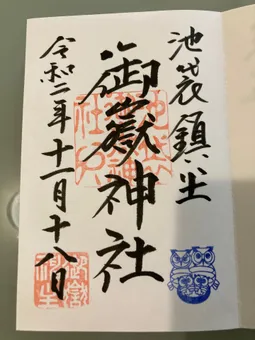 池袋鎮坐
御嶽神社
令和二年十一月十八日